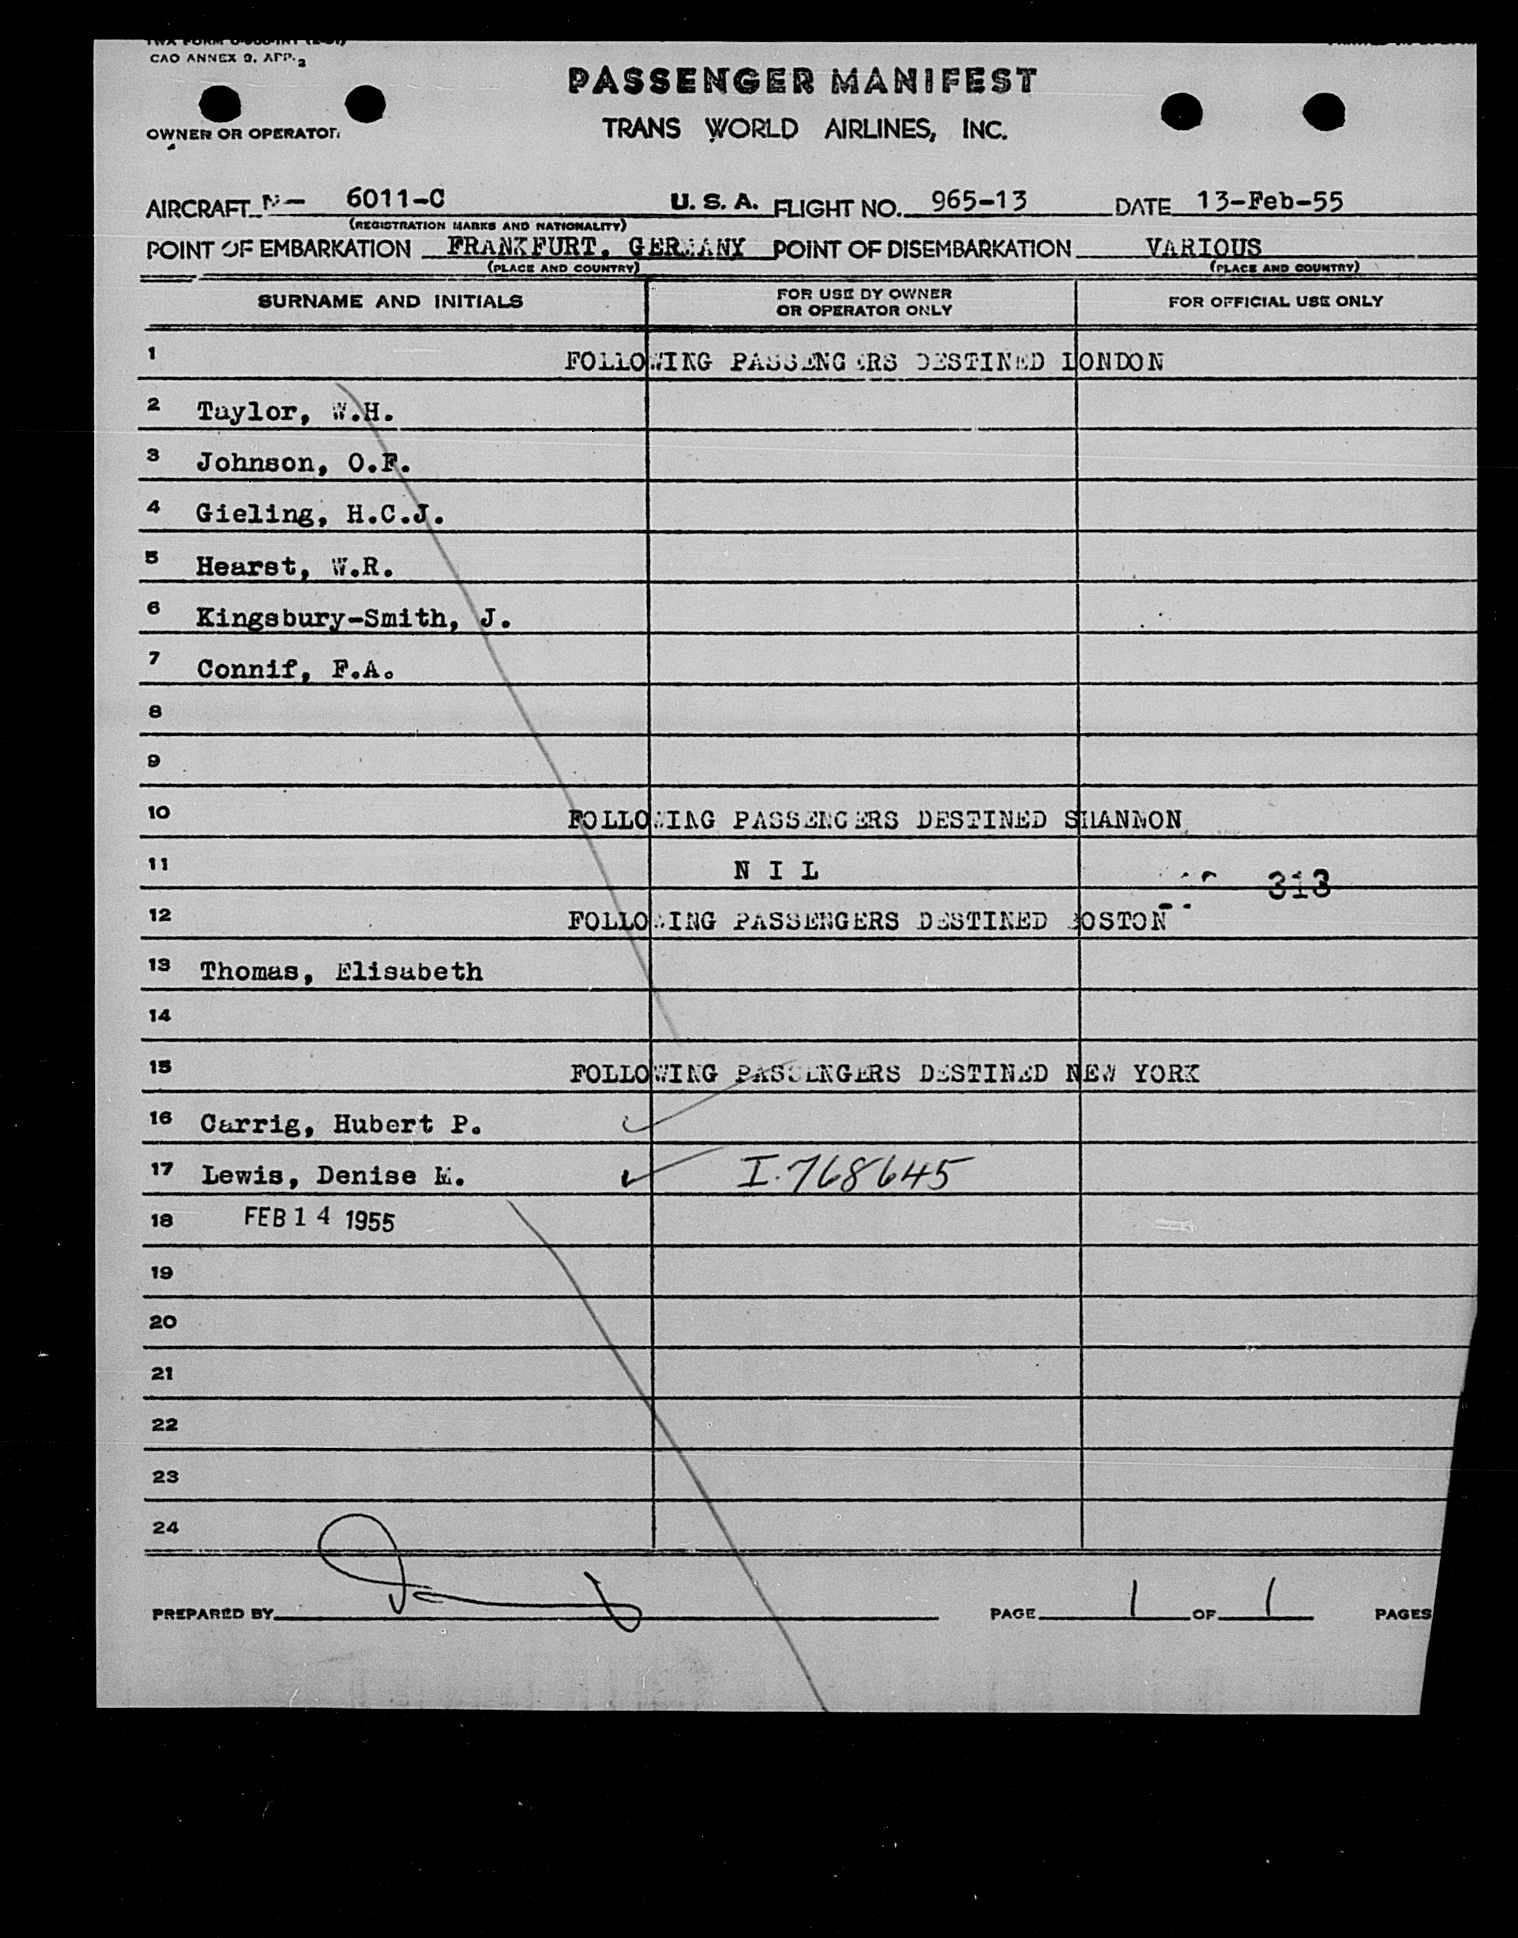 CAO ANNEX 9, APP. 2
PASSENGER MANIFEST
OWNER OR OPERATOR
TRANS WORLD AIRLINES, INC.
AIRCRAFT N- 6011-C U.S.A. FLIGHT NO. 965-13 DATE 13-Feb-55
(REGISTRATION MARKS AND NATIONALITY)
POINT OF EMBARKATION FRANKFURT, GERMANY POINT OF DISEMBARKATION VARIOUS
(PLACE AND COUNTRY) (PLACE AND COUNTRY)
SURNAME AND INITIALS FOR USE BY OWNER OR OPERATOR ONLY FOR OFFICIAL USE ONLY
1 FOLLOWING PASSENGERS DESTINED LONDON
2 Taylor, W.H.
3 Johnson, O.F.
4 Gieling, H.C.J.
5 Hearst, W.R.
6 Kingsbury-Smith, J.
7 Connif, F.A.
8
9
10 FOLLOWING PASSENGERS DESTINED SHANNON
11 N I L 313
12 FOLLOWING PASSENGERS DESTINED BOSTON
13 Thomas, Elisabeth
14
15 FOLLOWING PASSENGERS DESTINED NEW YORK
16 Carrig, Hubert P.
17 Lewis, Denise M. I.768645
18 FEB 14 1955
19
20
21
22
23
24
PREPARED BY PAGE 1 OF 1 PAGES